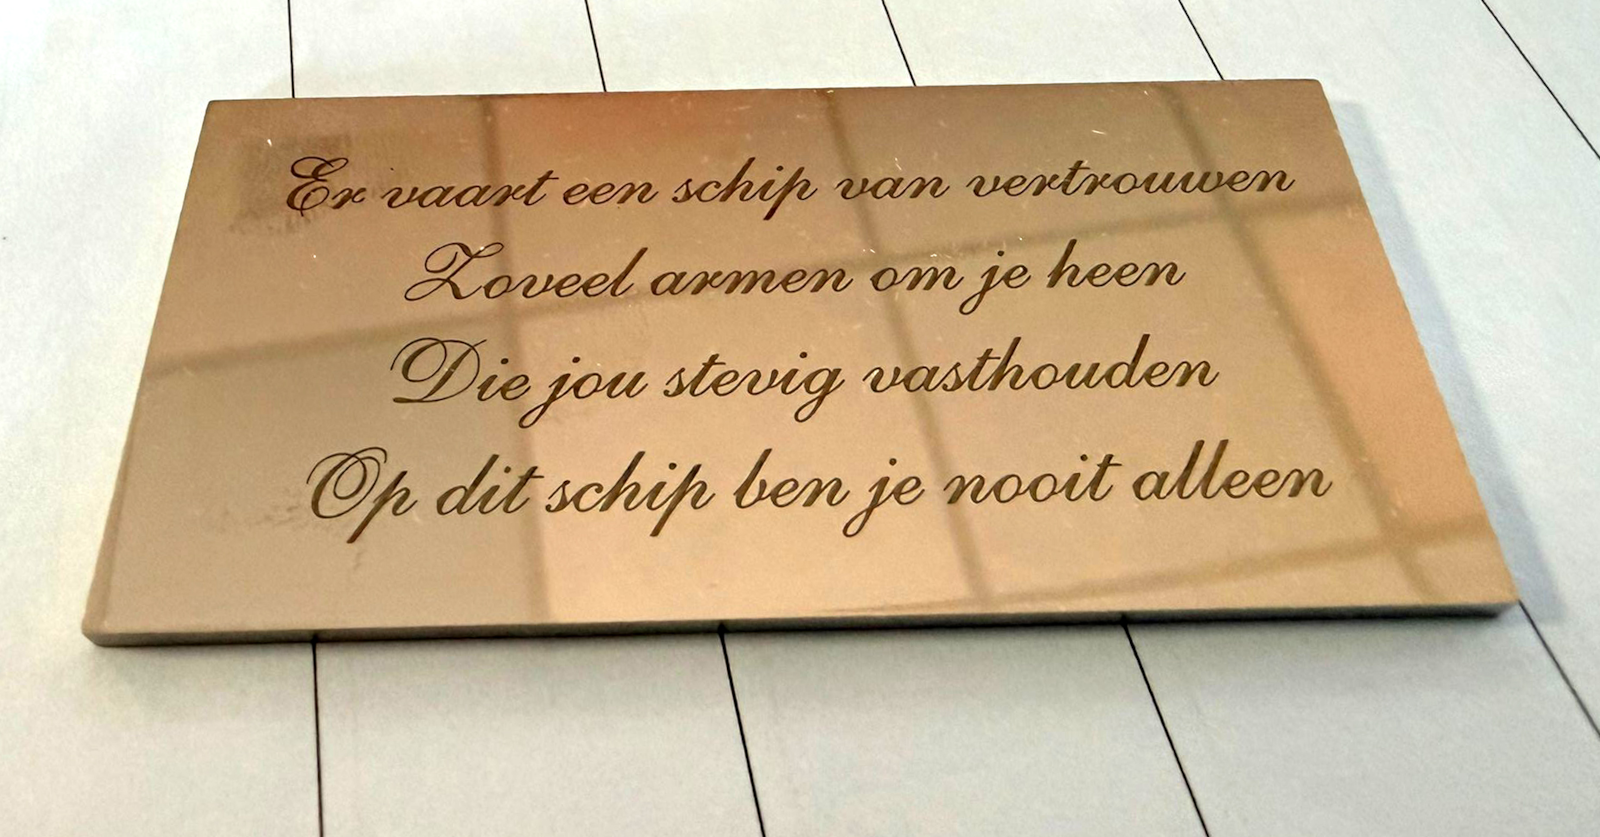 Er vaart een schip van vertrouwen
Zoveel armen om je heen
Die jou stevig vasthouden
Op dit schip ben je nooit alleen